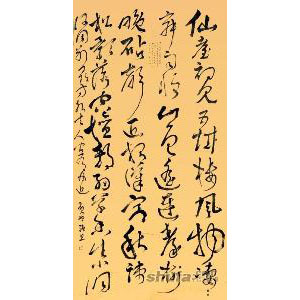 仙臺初见五城楼风物凄
凄宿雨收山色遥连秦树
晚砧声近报汉宫秋疏
松影落空壇静细草香生小洞
何用别寻方外去人间亦自有丹丘